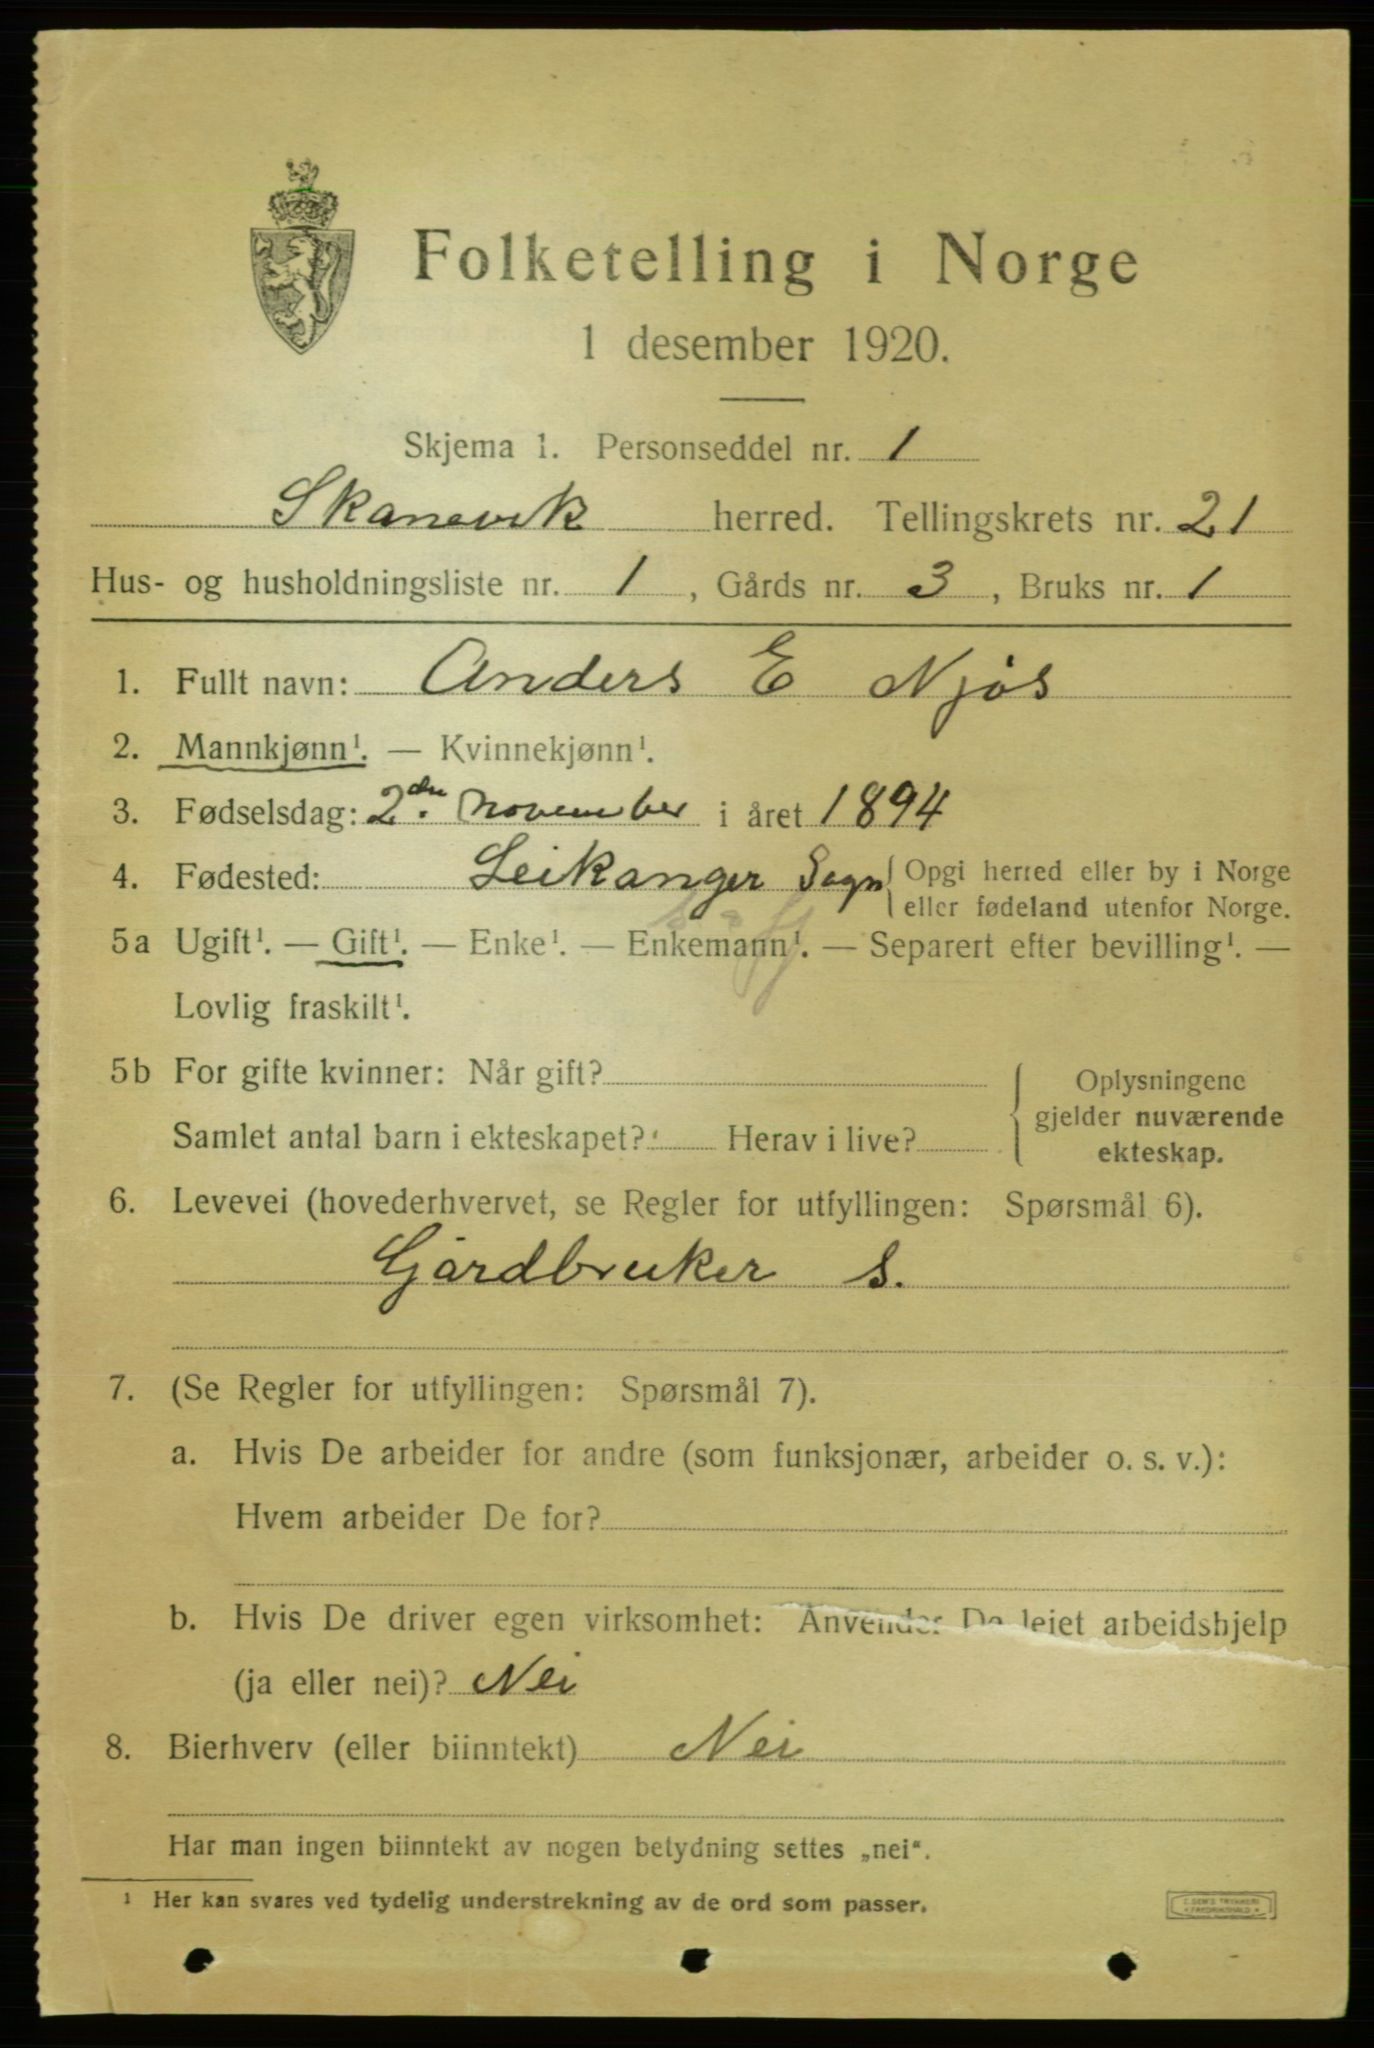 Folketelling i Norge
1 desember 1920.
Skjema 1. Personseddel nr. 1
Skanevik herred. Tellingskrets nr. 21
Hus- og husholdningsliste nr. 1, Gårds nr. 3, Bruks nr. 1
1. Fullt navn: Anders E Njøs
2. Mannkjønn¹. — Kvinnekjønn¹.
3. Fødselsdag: 2den. November i året 1894
4. Fødested: Leikanger Sogn { Opgi herred eller by i Norge
eller fødeland utenfor Norge.
5a Ugift¹. — Gift¹. — Enke¹. — Enkemann¹. — Separert efter bevilling¹. —
Lovlig fraskilt¹.
5b For gifte kvinner: Når gift?
Samlet antal barn i ekteskapet? Herav i live?
Oplysningene
gjelder nuværende
ekteskap.
6. Levevei (hovederhvervet, se Regler for utfyllingen: Spørsmål 6).
Gårdbruker S.
7. (Se Regler for utfyllingen: Spørsmål 7).
a. Hvis De arbeider for andre (som funksjonær, arbeider o. s. v.):
Hvem arbeider De for?
b. Hvis De driver egen virksomhet: Anvender De leiet arbeidshjelp
(ja eller nei)? Nei
8. Bierhverv (eller biinntekt) Nei
Har man ingen biinntekt av nogen betydning settes „nei“.
¹ Her kan svares ved tydelig understrekning av de ord som passer.